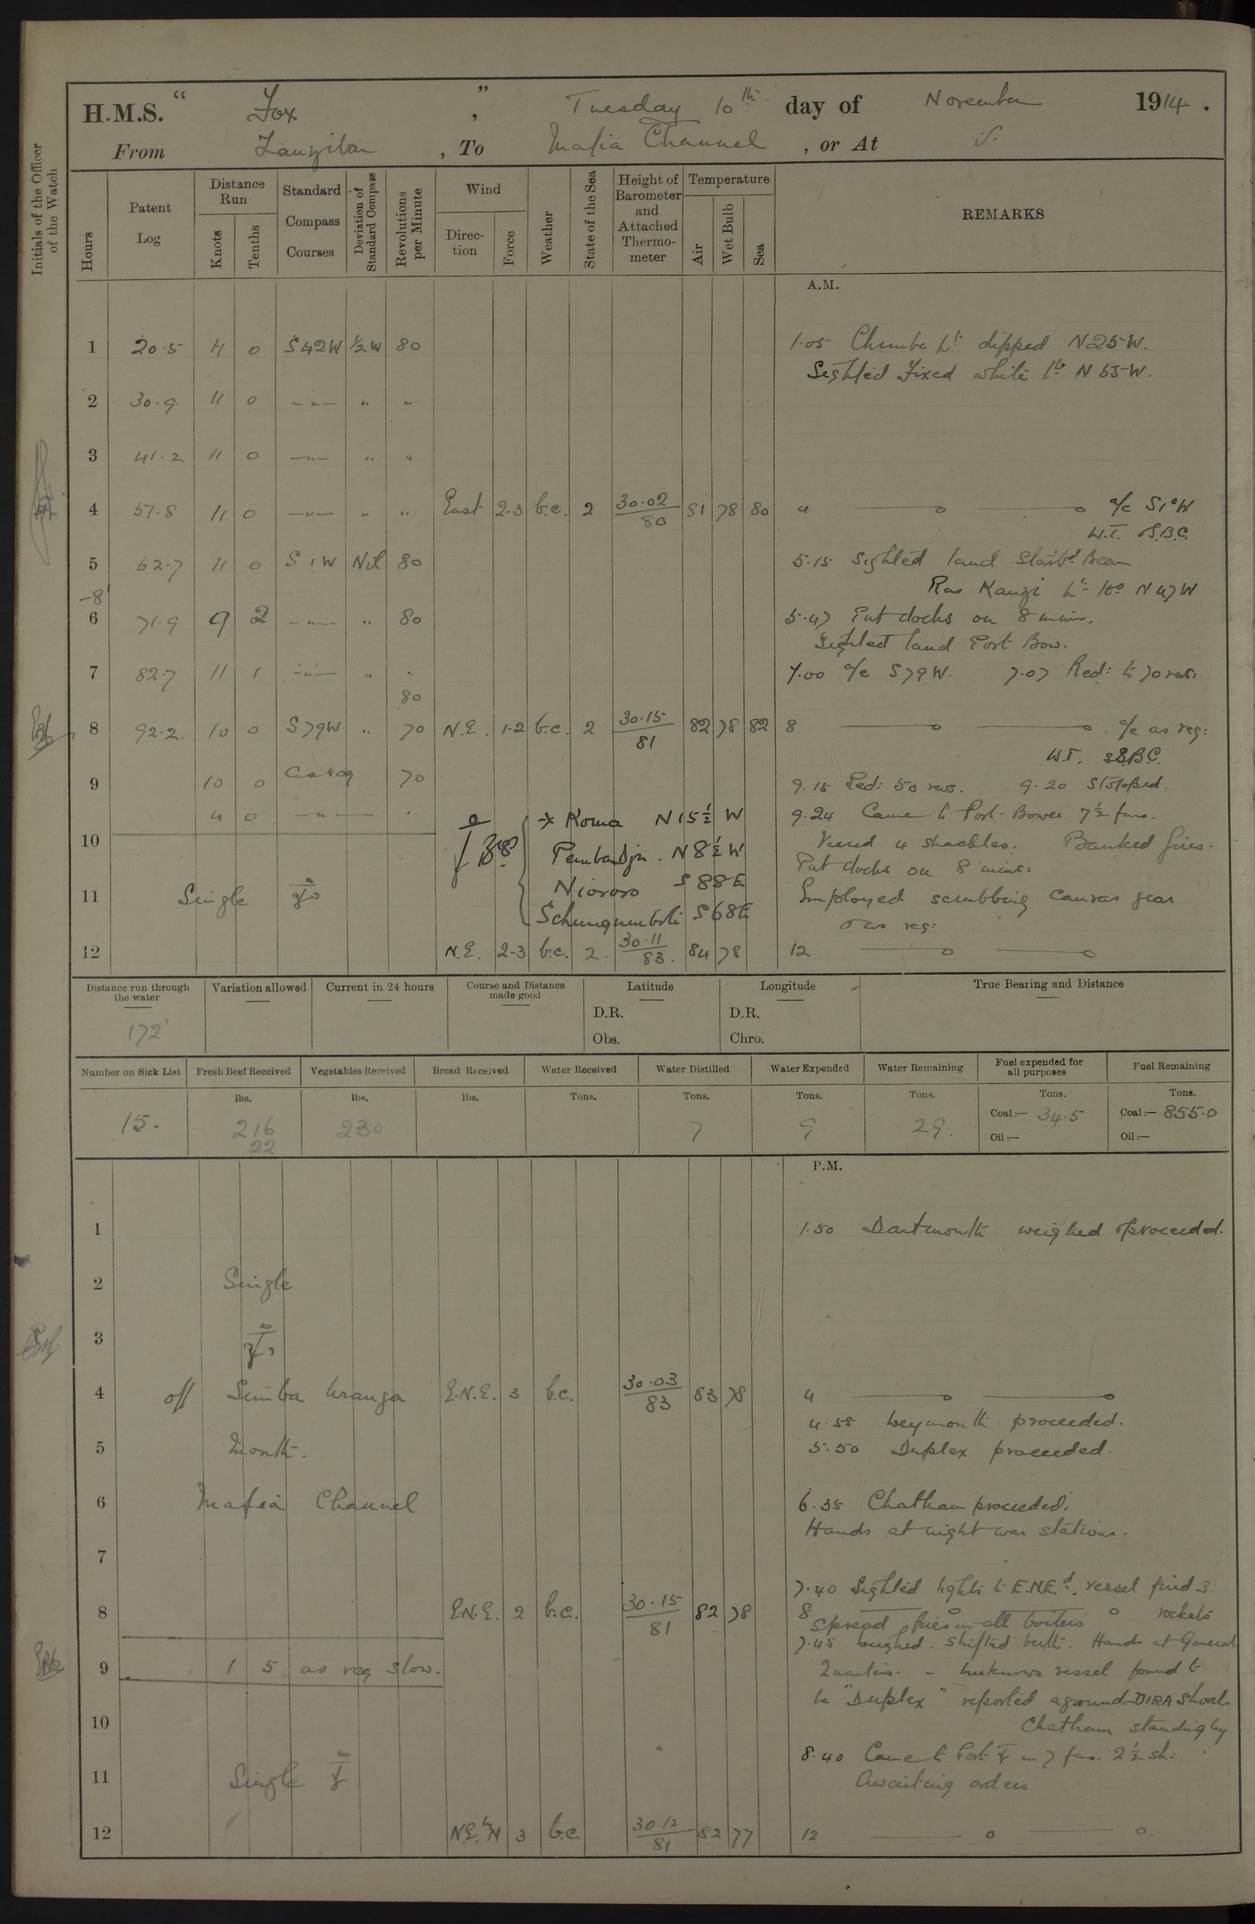 H.M.S. “ Fox ” , Tuesday 10th day of November 1914.
From Zanzibar , To Mafia Channel , or At
Initials of the Officer of the Watch
Hours
Patent Log
Distance Run
Knots
Tenths
Standard Compass Courses
Deviation of Standard Compass
Revolutions per Minute
Wind
Direction
Force
Weather
State of the Sea
Height of Barometer and Attached Thermometer
Temperature
Air
Wet Bulb
Sea
REMARKS
A.M.
1 20.5 11 0 S42W ½W 80 1.05 Chumbe Lt. dipped N25W.
Sighted Fixed white Lt N65W.
2 30.9 11 0 -"- " "
3 41.2 11 0 -"- " "
4 51.8 11 0 -"- " " East 2-3 b.c. 2 30.02/80 81 78 80 4 a/c S1°W
W.T. S.B.C.
5 62.7 11 0 S1W Nil 80 5.15 Sighted land Starbd Beam
Ras Kanzi Lt. Ho N47W
-8'
6 71.9 9 2 -"- " 80 5.47 Put clocks on 8 mins.
Sighted land Port Bow.
7 82.7 11 1 -"- " " 7.00 a/c S79W. 7.07 Red: to 70 revs:
80
8 92.2 10 0 S79W " 70 N.E. 1-2 b.c. 2 30.15/81 82 78 82 8 a/c as req:
W.T. S.B.C.
9 10 0 as req 70 9.15 Red: 50 revs. 9.20 Stopped.
4 0 -"- " Koma N15½W 9.24 Came to Port Bower 7½ fms.
10 Pemba Djn. N8½W Veered 4 shackles. Banked fires.
Put clocks on 8 mins:
11 Single Niororo S88E Employed scrubbing canvas gear
S68E & as req:
12 N.E. 2-3 b.c. 2. 30.11/83. 84 78 12
Distance run through the water
Variation allowed
Current in 24 hours
Course and Distance made good
Latitude
Longitude
True Bearing and Distance
172'
D.R.
Obs.
D.R.
Chro.
Number on Sick List
Fresh Beef Received
Vegetables Received
Bread Received
Water Received
Water Distilled
Water Expended
Water Remaining
Fuel expended for all purposes
Fuel Remaining
lbs. lbs. lbs. Tons. Tons. Tons. Tons. Tons. Tons.
15. 216 230 7 9 29. Coal:— 34.5 Coal:— 855.0
22 Oil:— Oil:—
P.M.
1 1.50 Dartmouth weighed & proceeded.
2 Single
3
4 off Simba Uranga E.N.E. 3 b.c. 30.03/83 83 78 4
4.55 Weymouth proceeded.
5 Mouth. 5.50 Duplex proceeded.
6 Mafia Channel 6.35 Chatham proceeded.
Hands at night war stations.
7
7.40 Sighted lights to E.N.Ed. vessel fired 3
8 E.N.E. 2 b.c. 30.15/81 82 78 8 rockets
Spread fires in all boilers
7.45 Weighed. Shifted berth. Hands at General
9 1 5 as req slow. Quarters. - Unknown vessel found to
be "Duplex" reported aground DIRA Shoal.
10 Chatham standing by
8.40 Came to Port in 7 fms. 2½ sh:
11 Single Awaiting orders
12 N.E.byN 3 b.c. 30.12/81 82 77 12